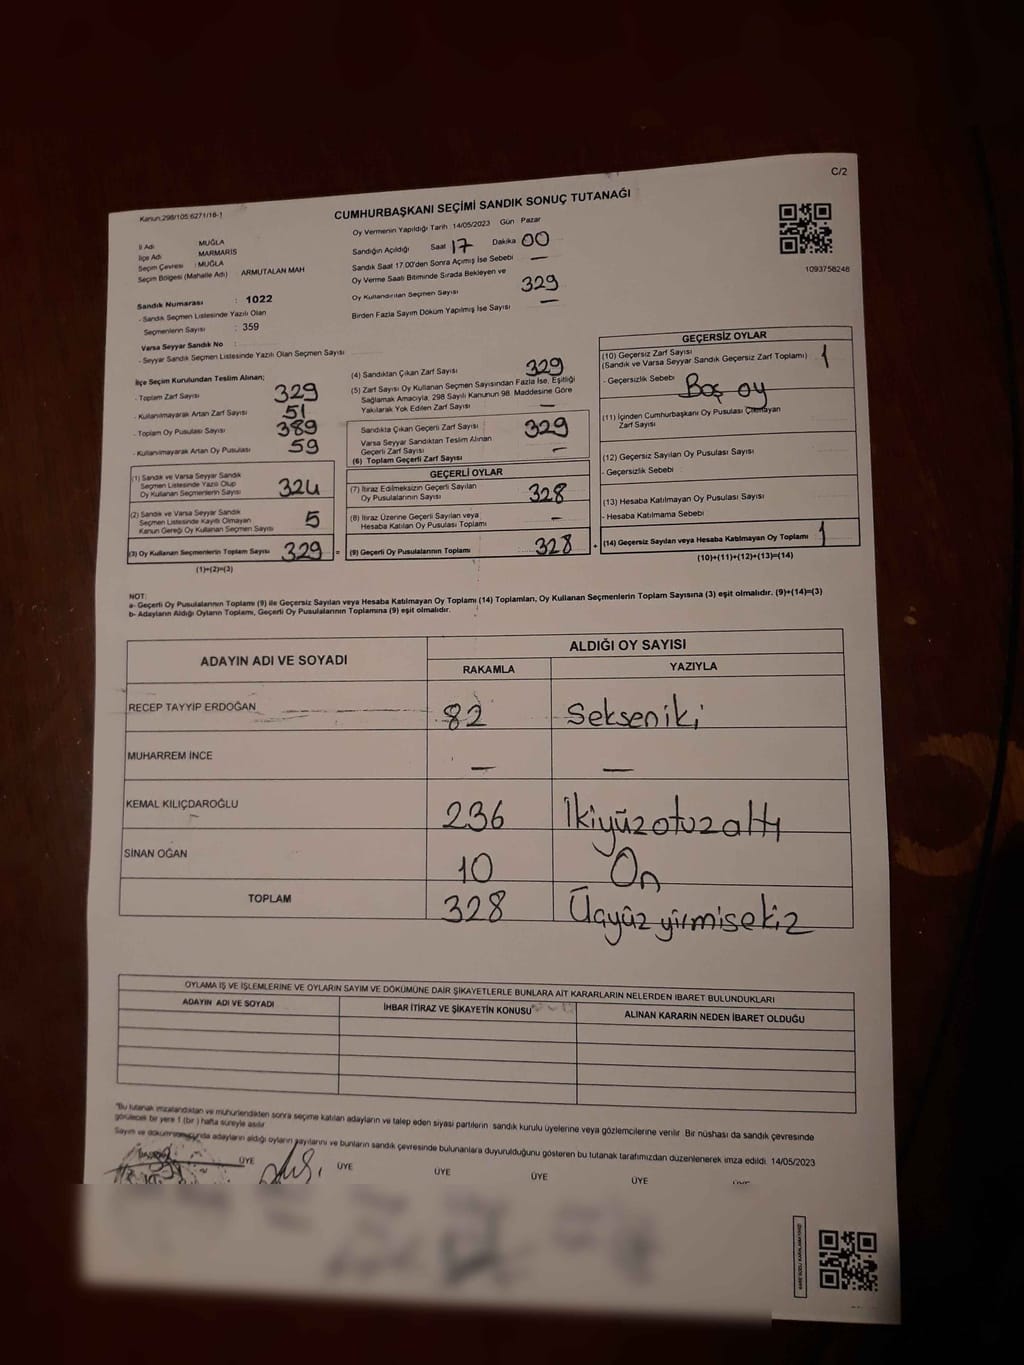 C/2
Kanun;298/105;6271/16-1
CUMHURBAŞKANI SEÇİMİ SANDIK SONUÇ TUTANAĞI
Oy Vermenin Yapıldığı Tarih 14/05/2023 Gün Pazar
İl Adı : MUĞLA
İlçe Adı : MARMARİS
Seçim Çevresi : MUĞLA
Seçim Bölgesi (Mahalle Adı) ARMUTALAN MAH
Sandığın Açıldığı Saat 17 Dakika 00
Sandık Saat 17.00'den Sonra Açımış İse Sebebi —
Oy Verme Saati Bitiminde Sırada Bekleyen ve
Oy Kullandırılan Seçmen Sayısı 329
Birden Fazla Sayım Döküm Yapılmış İse Sayısı —
1093758248
Sandık Numarası : 1022
- Sandık Seçmen Listesinde Yazılı Olan
Seçmenlerin Sayısı : 359
Varsa Seyyar Sandık No :
- Seyyar Sandık Seçmen Listesinde Yazılı Olan Seçmen Sayısı
İlçe Seçim Kurulundan Teslim Alınan;
- Toplam Zarf Sayısı 329
- Kullanılmayarak Artan Zarf Sayısı 51
- Toplam Oy Pusulası Sayısı 389
- Kullanılmayarak Artan Oy Pusulası 59
(1) Sandık ve Varsa Seyyar Sandık
Seçmen Listesinde Yazılı Olup
Oy Kullanan Seçmenlerin Sayısı 324
(2) Sandık ve Varsa Seyyar Sandık
Seçmen Listesinde Kayıtlı Olmayan
Kanun Gereği Oy Kullanan Seçmen Sayısı 5
(3) Oy Kullanan Seçmenlerin Toplam Sayısı 329 =
(1)+(2)=(3)
(4) Sandıktan Çıkan Zarf Sayısı 329
(5) Zarf Sayısı Oy Kullanan Seçmen Sayısından Fazla İse, Eşitliği
Sağlamak Amacıyla, 298 Sayılı Kanunun 98. Maddesine Göre
Yakılarak Yok Edilen Zarf Sayısı —
Sandıkta Çıkan Geçerli Zarf Sayısı 329
Varsa Seyyar Sandıktan Teslim Alınan
Geçerli Zarf Sayısı —
(6) Toplam Geçerli Zarf Sayısı
GEÇERLİ OYLAR
(7) İtiraz Edilmeksizin Geçerli Sayılan
Oy Pusulalarının Sayısı 328
(8) İtiraz Üzerine Geçerli Sayılan veya
Hesaba Katılan Oy Pusulası Toplamı —
(9) Geçerli Oy Pusulalarının Toplamı 328 +
GEÇERSİZ OYLAR
(10) Geçersiz Zarf Sayısı
(Sandık ve Varsa Seyyar Sandık Geçersiz Zarf Toplamı) 1
- Geçersizlik Sebebi Boş oy
(11) İçinden Cumhurbaşkanı Oy Pusulası Çıkmayan
Zarf Sayısı
(12) Geçersiz Sayılan Oy Pusulası Sayısı
- Geçersizlik Sebebi
(13) Hesaba Katılmayan Oy Pusulası Sayısı
- Hesaba Katılmama Sebebi
(14) Geçersiz Sayılan veya Hesaba Katılmayan Oy Toplamı 1
(10)+(11)+(12)+(13)=(14)
NOT:
a- Geçerli Oy Pusulalarının Toplamı (9) ile Geçersiz Sayılan veya Hesaba Katılmayan Oy Toplamı (14) Toplamları, Oy Kullanan Seçmenlerin Toplam Sayısına (3) eşit olmalıdır. (9)+(14)=(3)
b- Adayların Aldığı Oyların Toplamı, Geçerli Oy Pusulalarının Toplamına (9) eşit olmalıdır.
ADAYIN ADI VE SOYADI ALDIĞI OY SAYISI
RAKAMLA YAZIYLA
RECEP TAYYİP ERDOĞAN 82 Sekseniki
MUHARREM İNCE — —
KEMAL KILIÇDAROĞLU 236 İkiyüzotuzaltı
SİNAN OĞAN 10 On
TOPLAM 328 Üçyüzyirmisekiz
OYLAMA İŞ VE İŞLEMLERİNE VE OYLARIN SAYIM VE DÖKÜMÜNE DAİR ŞİKAYETLERLE BUNLARA AİT KARARLARIN NELERDEN İBARET BULUNDUKLARI
ADAYIN ADI VE SOYADI İHBAR İTİRAZ VE ŞİKAYETİN KONUSU ALINAN KARARIN NEDEN İBARET OLDUĞU
"Bu tutanak imzalandıktan ve mühürlendikten sonra seçime katılan adayların ve talep eden siyasi partilerin sandık kurulu üyelerine veya gözlemcilerine verilir. Bir nüshası da sandık çevresinde
görülecek bir yere 1 (bir) hafta süreyle asılır
Sayım ve dökümü adayların aldığı oyların sayılarını ve bunların sandık çevresinde bulunanlara duyurulduğunu gösteren bu tutanak tarafımızdan düzenlenerek imza edildi. 14/05/2023
ÜYE ÜYE ÜYE ÜYE ÜYE